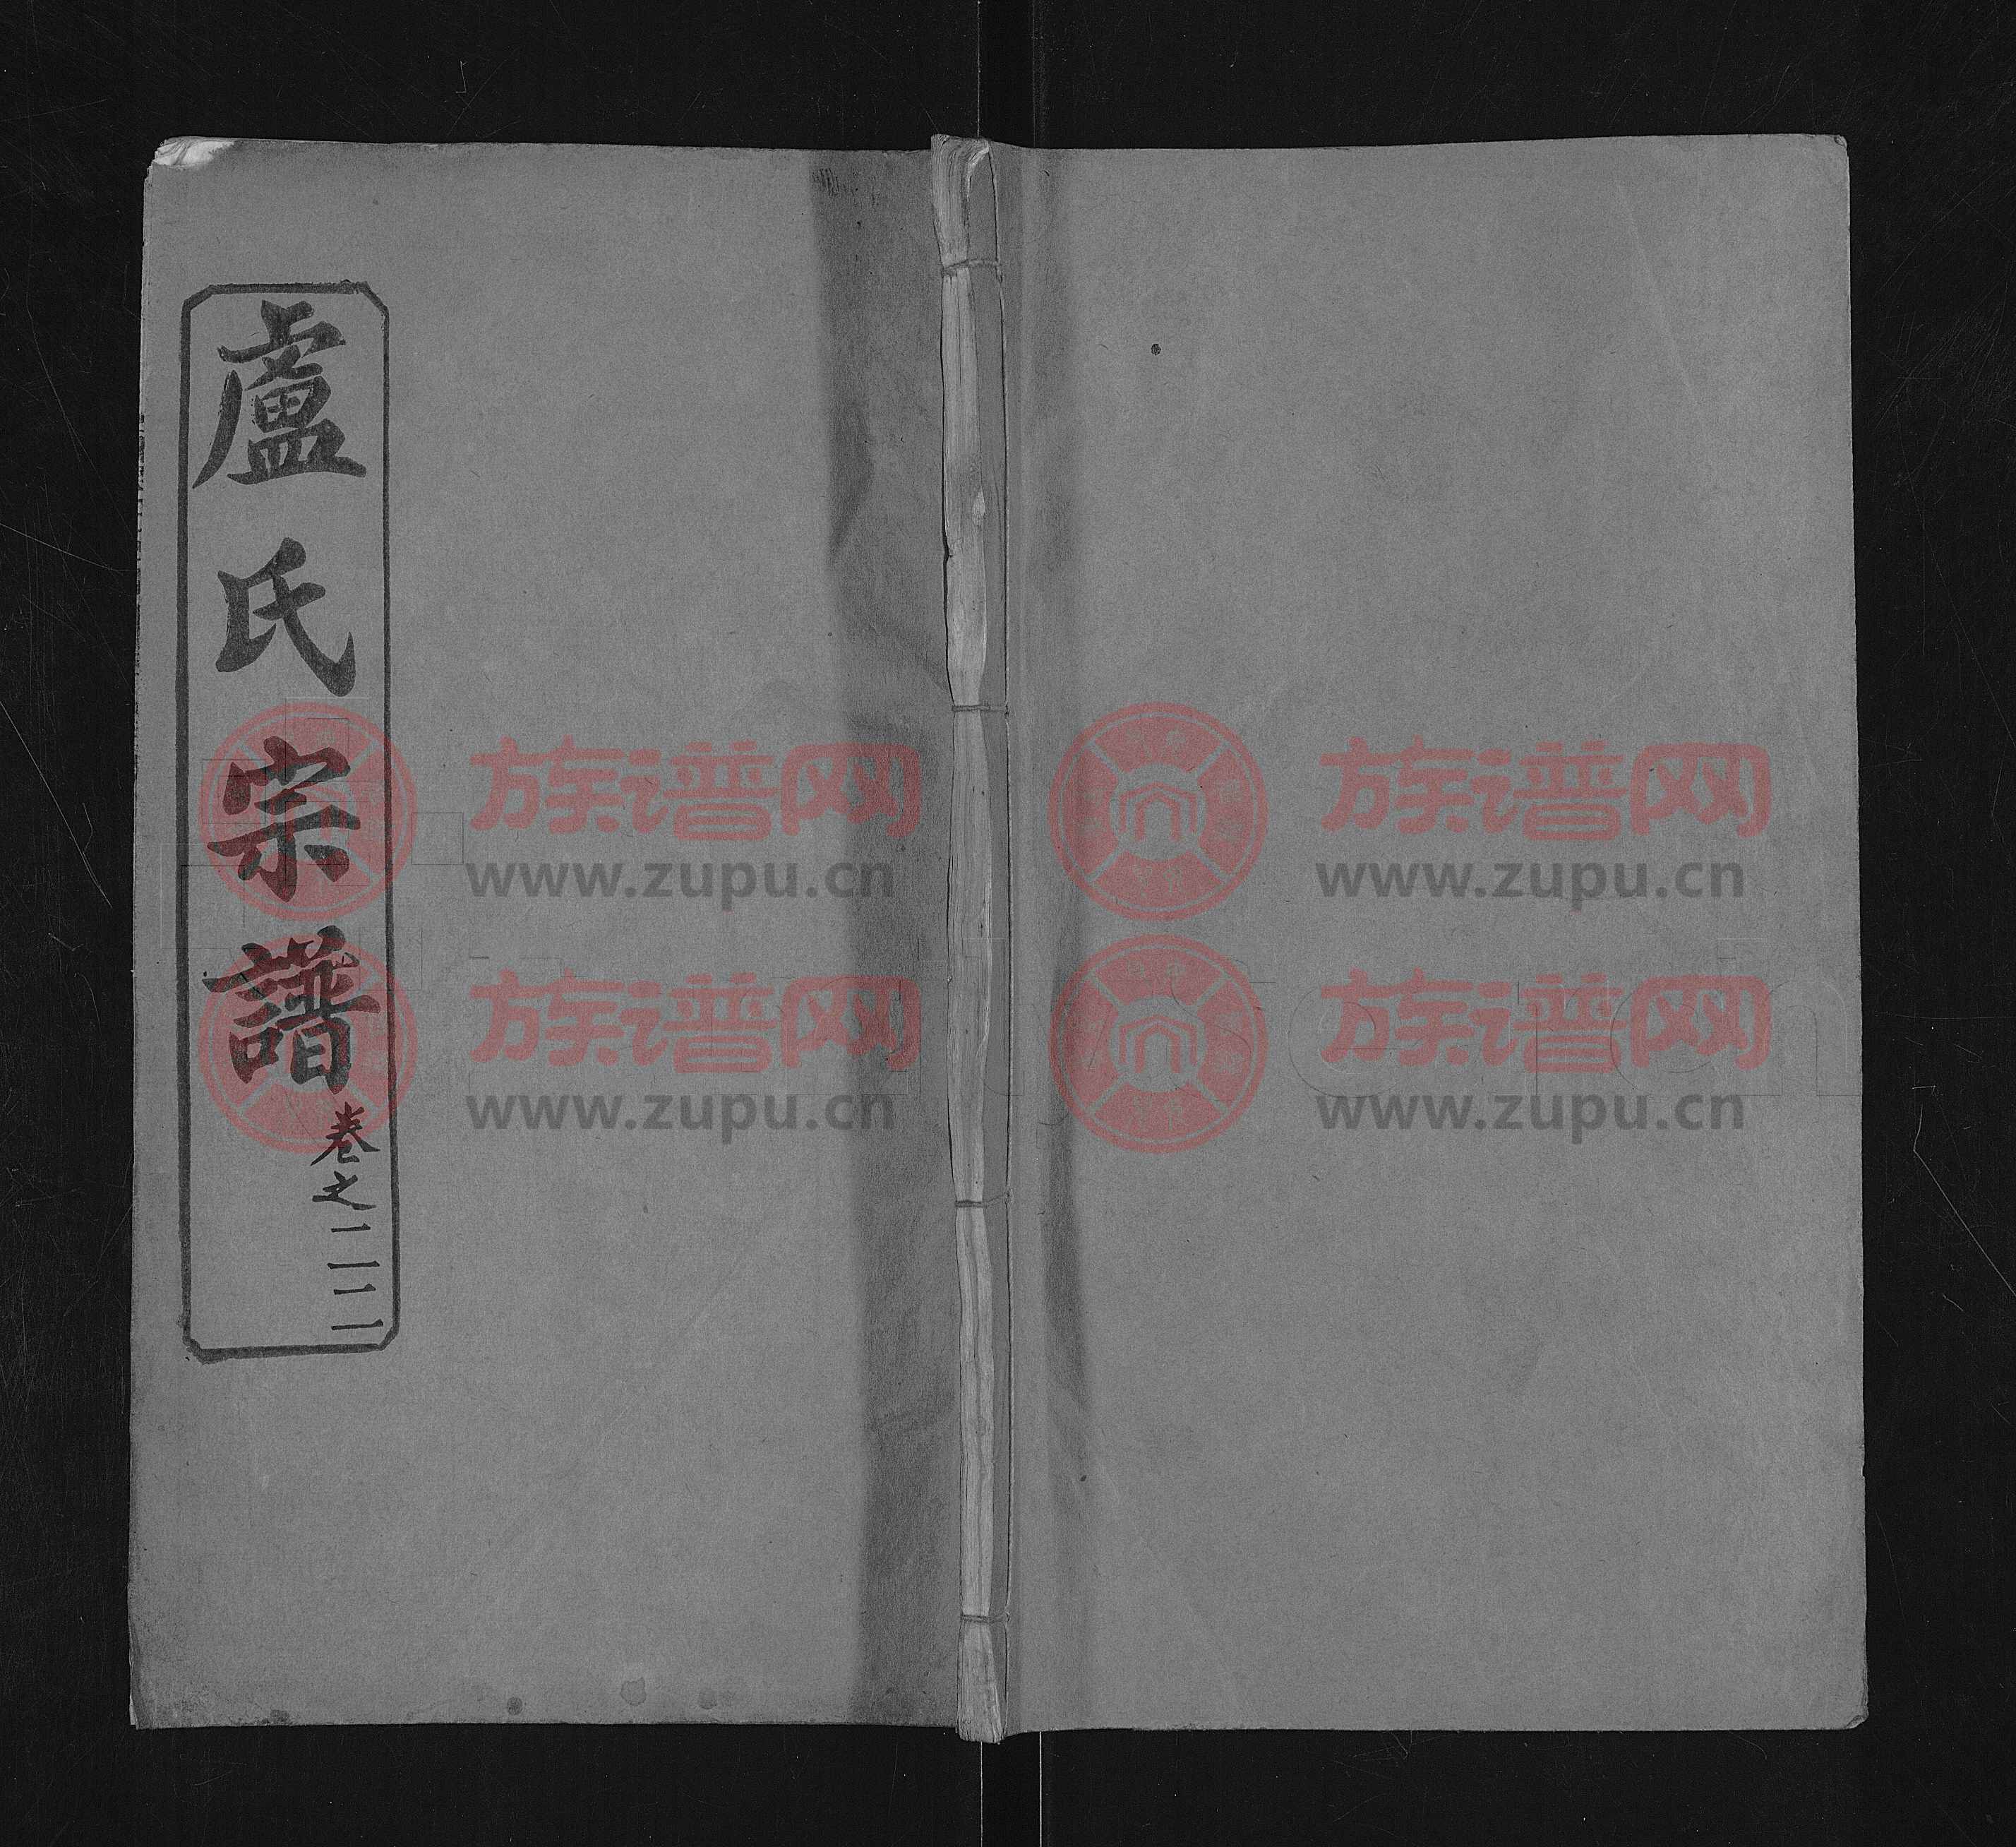 盧氏宗譜
卷之一二三
族谱网
www.zupu.cn
族谱网
www.zupu.cn
族谱网
www.zupu.cn
族谱网
www.zupu.cn